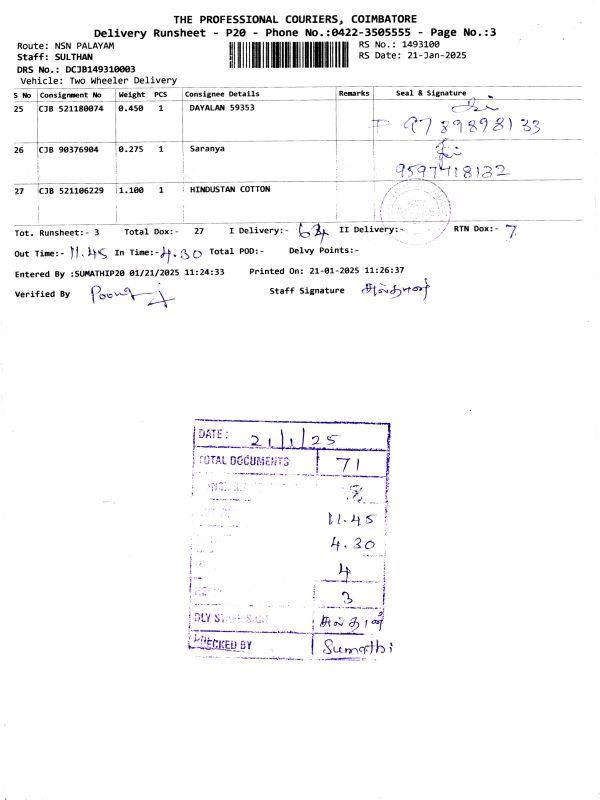 THE PROFESSIONAL COURIERS, COIMBATORE
Delivery Runsheet - P20 - Phone No.:0422-3505555 - Page No.:3
Route: NSN PALAYAM RS No.: 1493100
Staff: SULTHAN RS Date: 21-Jan-2025
DRS No.: DCJB149310003
Vehicle: Two Wheeler Delivery
S No Consignment No Weight PCS Consignee Details Remarks Seal & Signature
25 CJB 521180074 0.450 1 DAYALAN 59353
9789898133
26 CJB 90376904 0.275 1 Saranya
9597418132
27 CJB 521106229 1.100 1 HINDUSTAN COTTON
Tot. Runsheet:- 3 Total Dox:- 27 I Delivery:- 64 II Delivery:- RTN Dox:- 7
Out Time:- 11.45 In Time:- 4.30 Total POD:- Delvy Points:-
Entered By :SUMATHIP20 01/21/2025 11:24:33 Printed On: 21-01-2025 11:26:37
Verified By Staff Signature சுல்தான்
DATE: 21/1/25
TOTAL DOCUMENTS 71
11.45
4.30
4
3
DLY STAFF SIGN சுல்தான்
CHECKED BY Sumathi